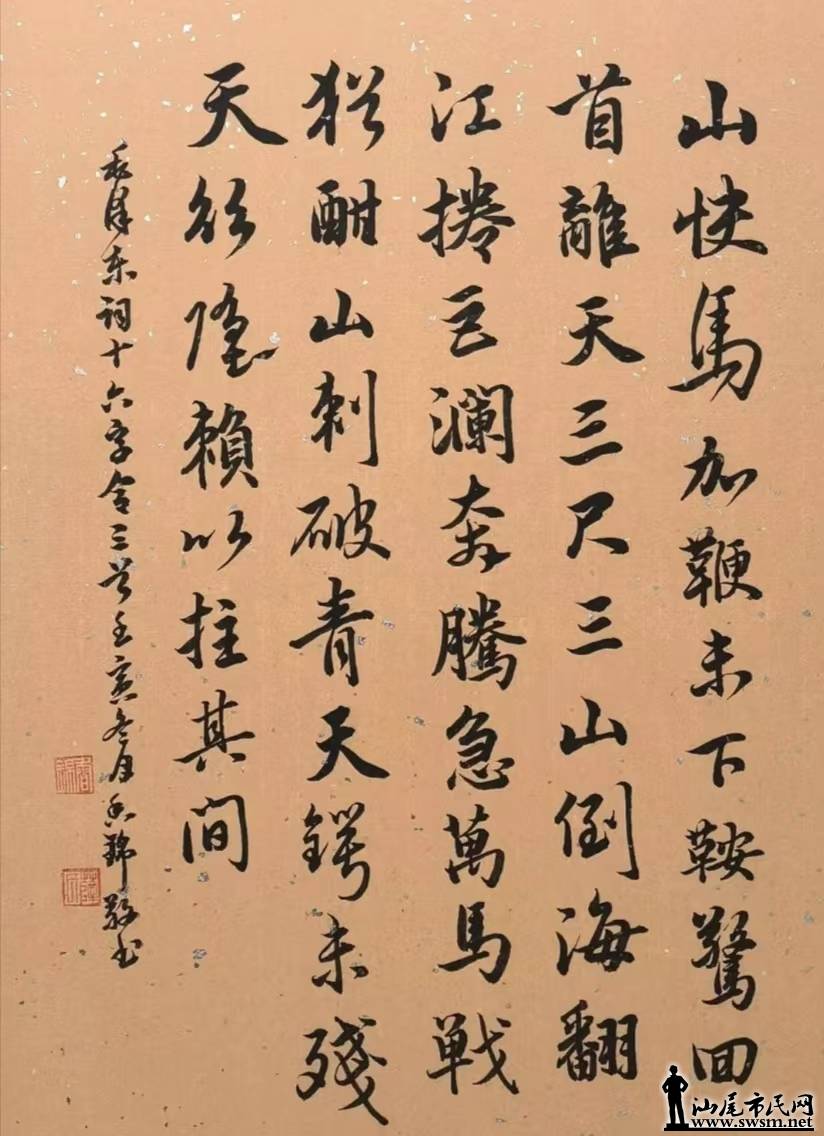 山快馬加鞭未下鞍驚回
首離天三尺三山倒海翻
江捲巨瀾奔騰急萬馬戰
猶酣山刺破青天鍔未殘
天欲墮賴以拄其間
毛澤东词十六字令三首壬寅冬月香錦敬书
汕尾市民网
www.swsm.net